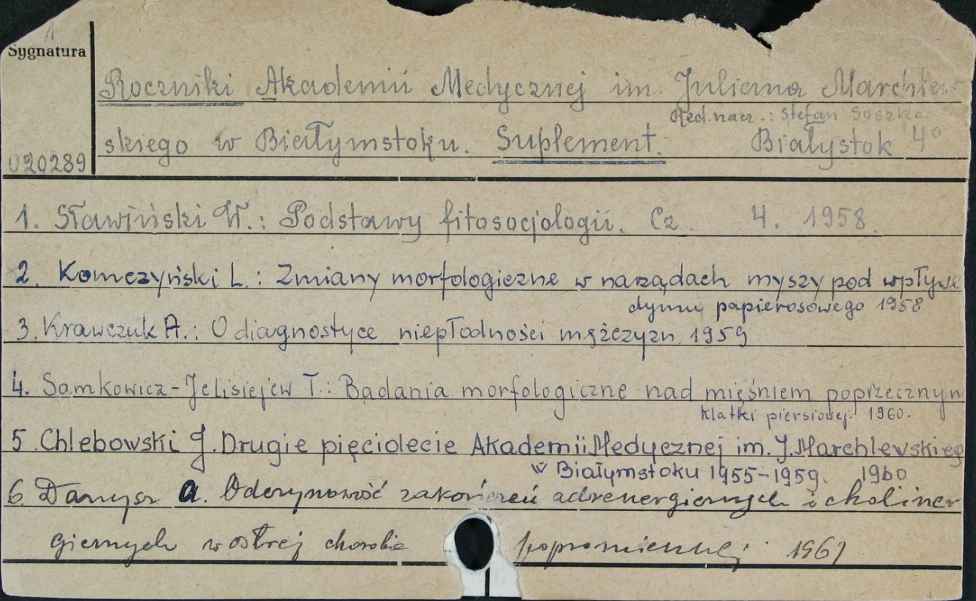 Sygnatura
Roczniki Akademii Medycznej im. Juliana Marchlew-
Red. nacz.: Stefan Soszka
skiego w Białymstoku. Suplement. Białystok 4°
020289
1. Sławiński W.: Podstawy fitosocjologii. Cz. 4. 1958.
2. Komczyński L.: Zmiany morfologiczne w narządach myszy pod wpływe
dymu papierosowego 1958
3. Krawczuk A.: O diagnostyce niepłodności mężczyzn 1959
4. Samkowicz-Jelisiejew T.: Badania morfologiczne nad mięśniem poprzecznym
klatki piersiowej. 1960.
5 Chlebowski J. Drugie pięciolecie Akademii Medycznej im. J. Marchlewskieg
w Białymstoku 1955-1959. 1960
6. Danysz A. Oderynowość zakończeń adrenergicznych i choliner
gicznych w ostrej chorobie popromiennej 1961